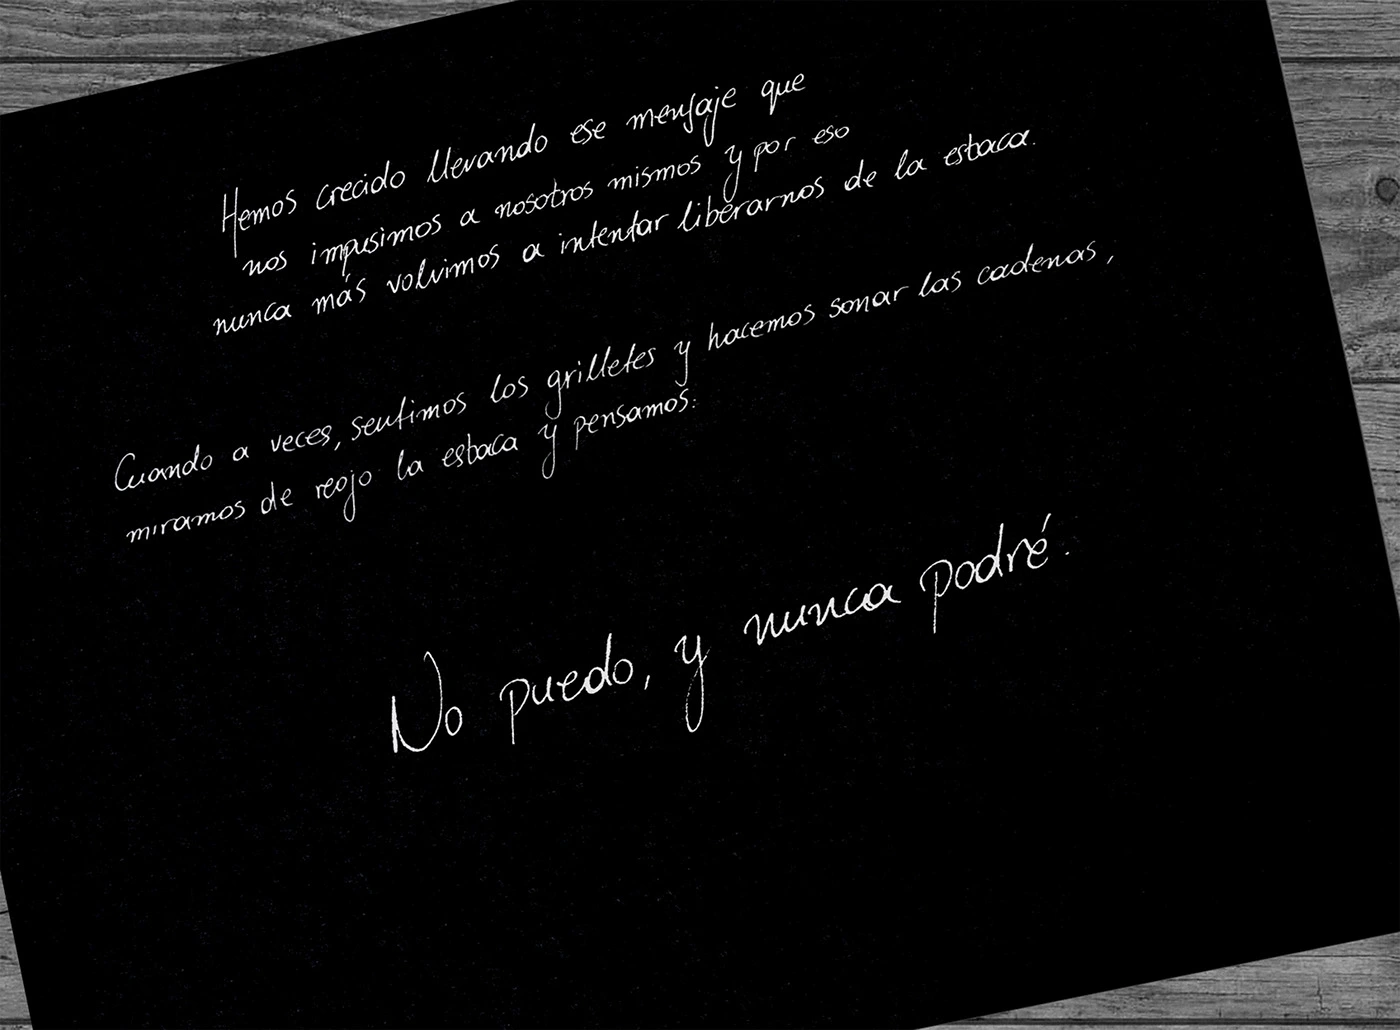 Hemos crecido llevando ese mensaje que
nos impusimos a nosotros mismos y por eso
nunca más volvimos a intentar liberarnos de la estaca.
Cuando a veces, sentimos los grilletes y hacemos sonar las cadenas,
miramos de reojo la estaca y pensamos:
No puedo, y nunca podré.